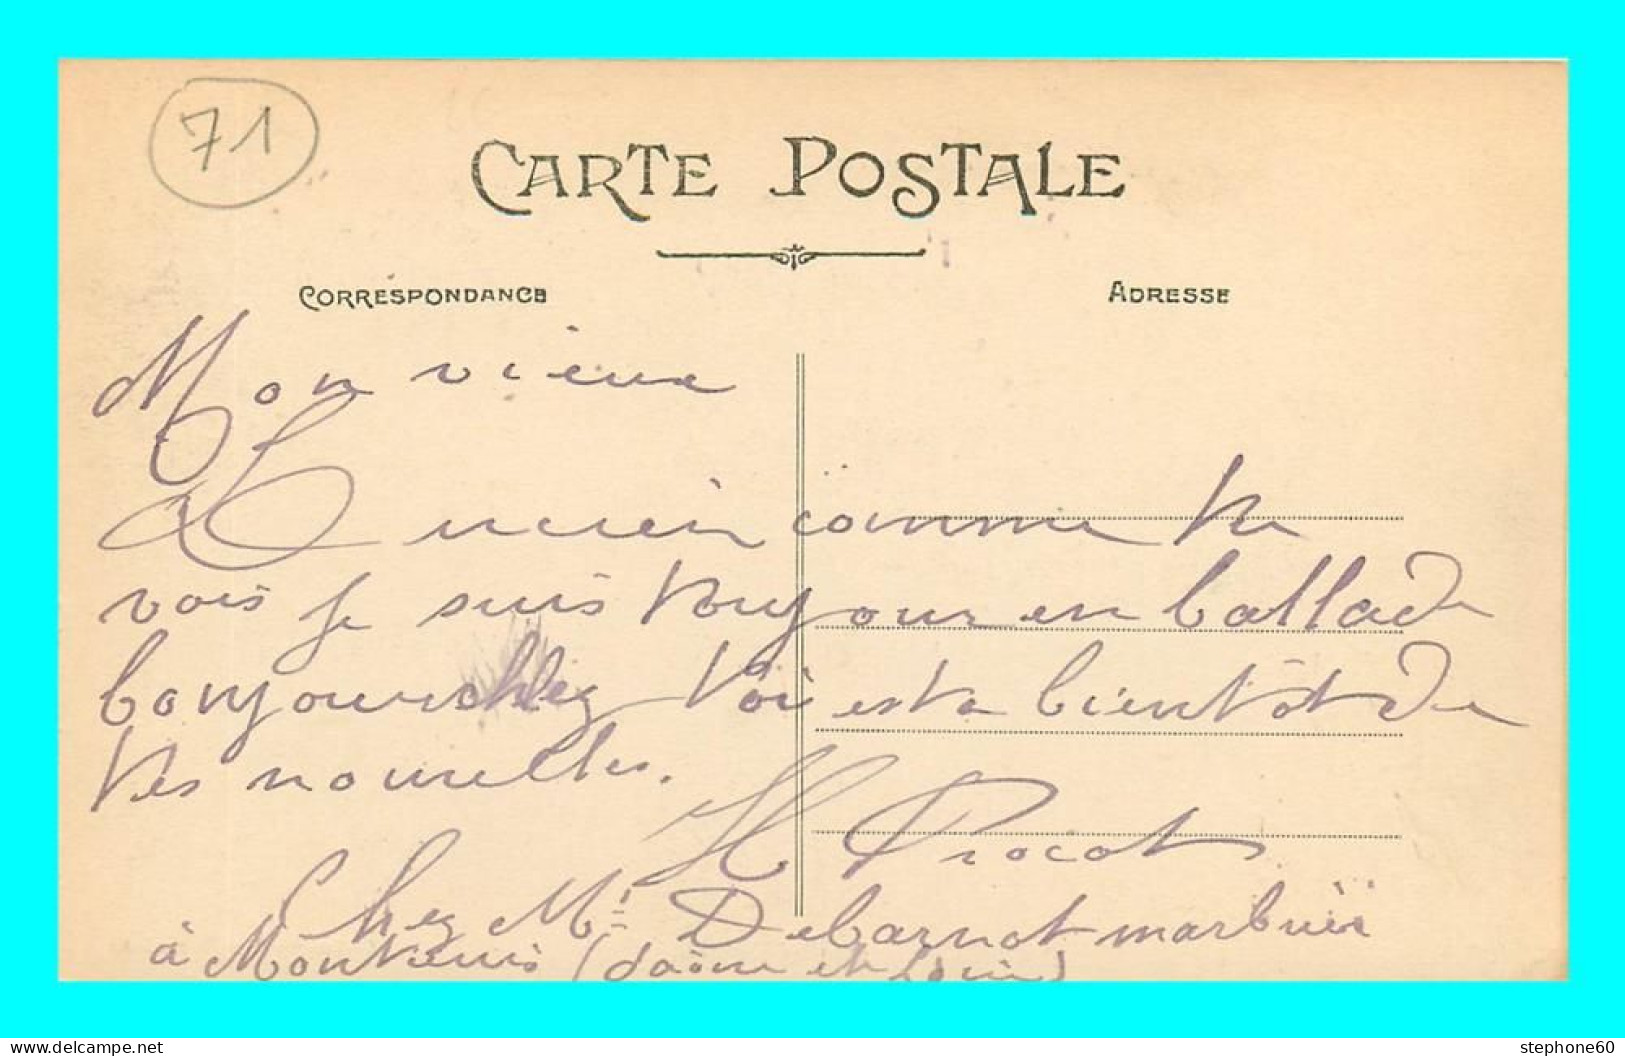 71
CARTE POSTALE
CORRESPONDANCE
ADRESSE
Mon vieux
Lucien comme tu
vois je suis toujour en ballade
bonjour chez toi est a bientôt de
tes nouvelles.
H Procot
Chez Mr Debarnot marbrier
à Montcenis (Saône et Loire)
www.delcampe.net
stephone60